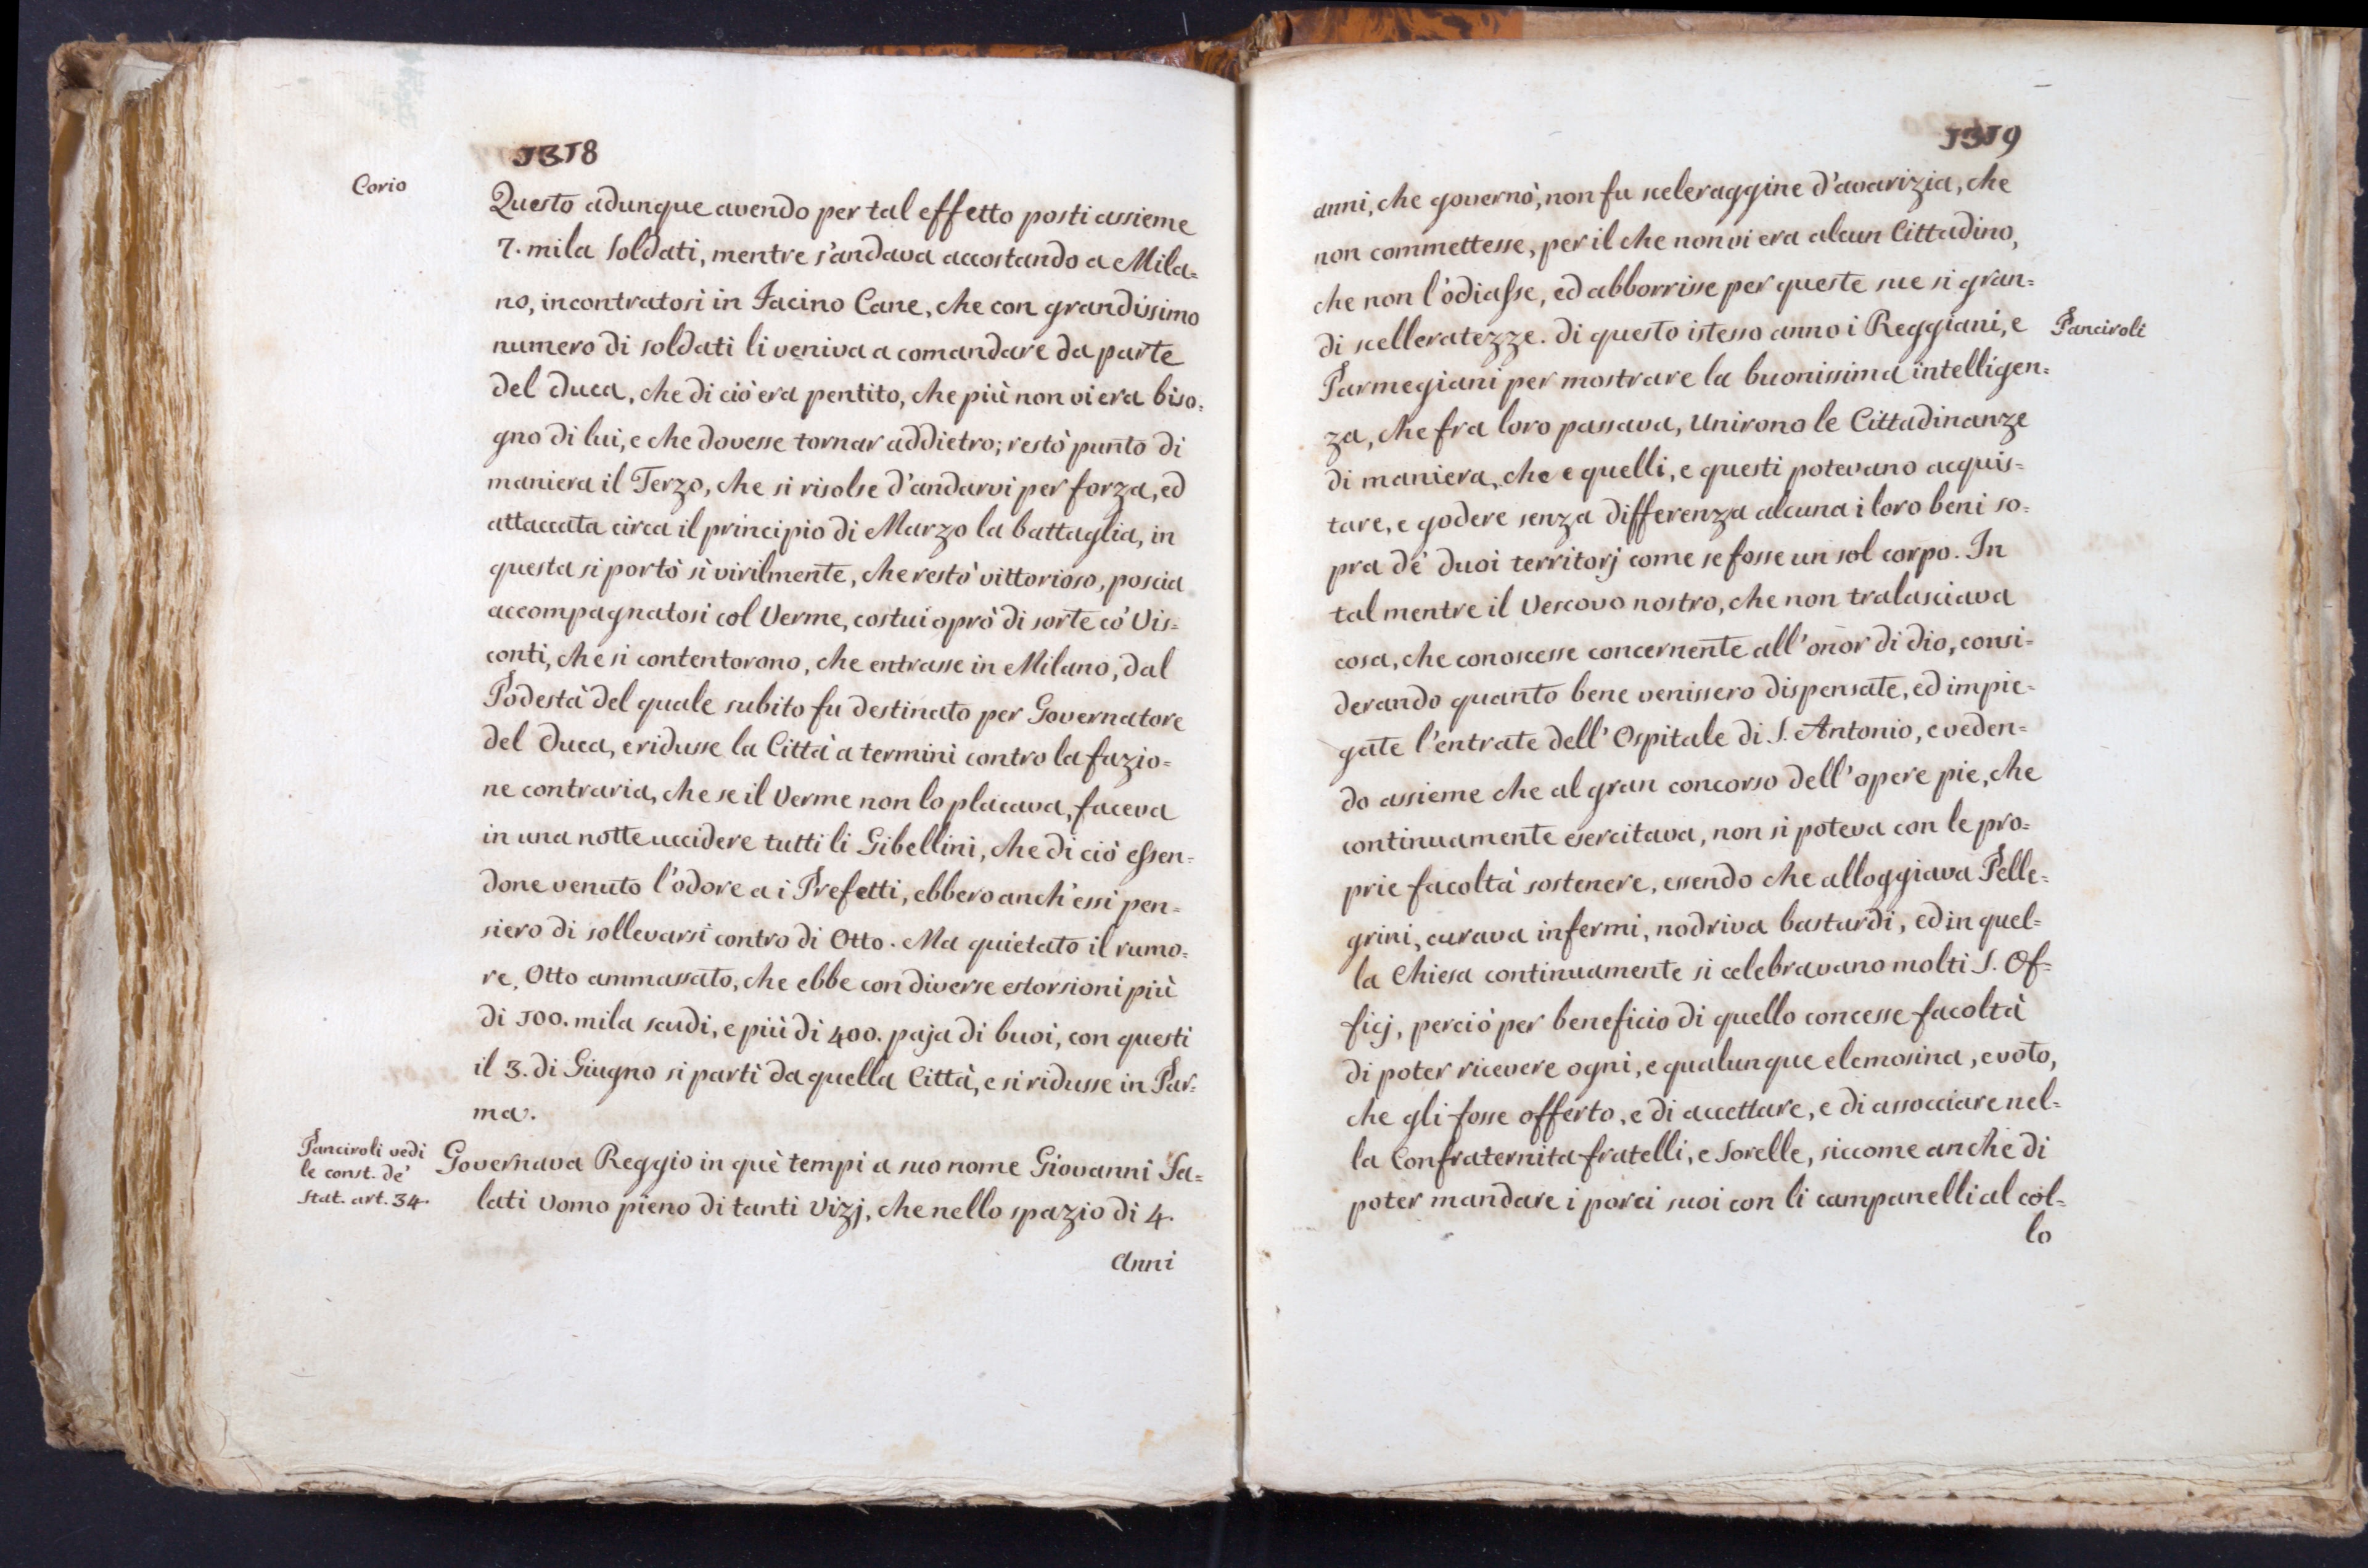 1318
Corio
Questo adunque avendo per tal effetto posti assieme
7. mila soldati, mentre s'andava accostando a Mila=
no, incontratosi in Facino Cane, che con grandissimo
numero di soldati li veniva a comandare da parte
del Duca, che di ciò era pentito, che più non vi era biso=
gno di lui, e che dovesse tornar addietro; restò punto di
maniera il Terzo, che si risolse d'andarvi per forza, ed
attaccata circa il principio di Marzo la battaglia, in
questa si portò sì virilmente, che restò vittorioso, poscia
accompagnatosi col Verme, costui oprò di sorte co' Vis=
conti, che si contentorono, che entrasse in Milano, dal
Podestà del quale subito fu destinato per Governatore
del Duca, e ridusse la Città a termini contro la fazio=
ne contraria, che se il Verme non lo placava, faceva
in una notte uccidere tutti li Gibellini, che di ciò essen=
done venuto l'odore a i Prefetti, ebbero anch'essi pen=
siero di sollevarsi contro di Otto. Ma quietato il rumo=
re, Otto ammassato, che ebbe con diverse estorsioni più
di 100. mila scudi, e più di 400. paja di buoi, con questi
il 3. di Giugno si partì da quella Città, e si ridusse in Par=
ma.
Panciroli vedi
le const. de'
stat. art. 34.
Governava Reggio in què tempi a suo nome Giovanni Sa=
lati Uomo pieno di tanti Vizj, che nello spazio di 4.
Anni
1319
anni, che governò, non fu sceleraggine d'avarizia, che
non commettesse, per il che non vi era alcun Cittadino,
che non l'odiasse, ed abborrisse per queste sue si gran=
di scelleratezze. di questo istesso anno i Reggiani, e
Panciroli
Parmegiani per mostrare la buonissima intelligen=
za, che fra loro passava, Unirono le Cittadinanze
di maniera, che e quelli, e questi potevano acquis=
tare, e godere senza differenza alcuna i loro beni so=
pra de' duoi territorj come se fosse un sol corpo. In
tal mentre il Vescovo nostro, che non tralasciava
cosa, che conoscesse concernente all'onor di Dio, consi=
derando quanto bene venissero dispensate, ed impie=
gate l'entrate dell'Ospitale di S. Antonio, e veden=
do assieme che al gran concorso dell'opere pie, che
continuamente esercitava, non si poteva con le pro=
prie facoltà sostenere, essendo che alloggiava Pelle=
grini, curava infermi, nodriva bastardi, ed in quel=
la Chiesa continuamente si celebravano molti S. Of=
ficj, perciò per beneficio di quello concesse facoltà
di poter ricevere ogni, e qualunque elemosina, e voto,
che gli fosse offerto, e di accettare, e di associare nel=
la Confraternita fratelli, e Sorelle, siccome anche di
poter mandare i porci suoi con li campanelli al col=
lo